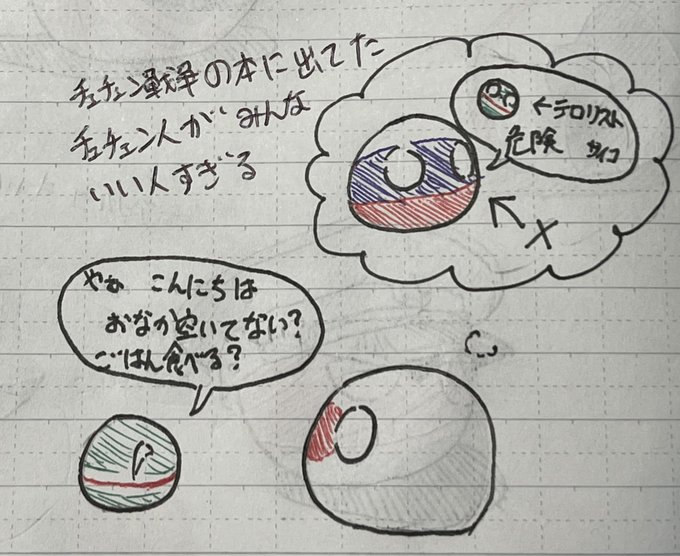 チェチェン戦争の本に出てた
チェチェン人がみんな
いい人すぎる
←テロリスト
危険 サイコ
メ
やぁ こんにちは
おなか空いてない?
ごはん食べる?